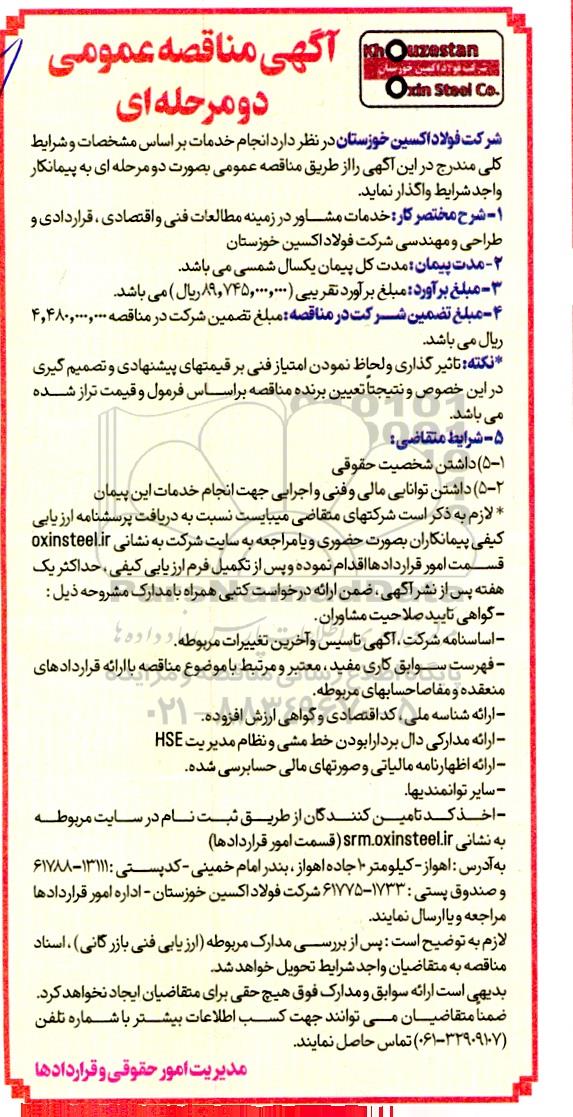 Khouzestan
شرکت فولاد اکسین خوزستان
Oxin Steel Co.
آگهی مناقصه عمومی
دو مرحله ای
شرکت فولاد اکسین خوزستان در نظر دارد انجام خدمات بر اساس مشخصات و شرایط
کلی مندرج در این آگهی را از طریق مناقصه عمومی بصورت دو مرحله ای به پیمانکار
واجد شرایط واگذار نماید.
۱- شرح مختصر کار: خدمات مشاور در زمینه مطالعات فنی و اقتصادی ، قراردادی و
طراحی و مهندسی شرکت فولاد اکسین خوزستان
۲- مدت پیمان: مدت کل پیمان یکسال شمسی می باشد.
۳- مبلغ برآورد: مبلغ برآورد تقریبی (۸۹,۷۴۵,۰۰۰,۰۰۰ ریال) می باشد.
۴- مبلغ تضمین شرکت در مناقصه: مبلغ تضمین شرکت در مناقصه ۴,۴۸۰,۰۰۰,۰۰۰
ریال می باشد.
*نکته: تاثیر گذاری و لحاظ نمودن امتیاز فنی بر قیمتهای پیشنهادی و تصمیم گیری
در این خصوص و نتیجتاً تعیین برنده مناقصه براساس فرمول و قیمت تراز شده
می باشد.
۵- شرایط متقاضی:
۵-۱) داشتن شخصیت حقوقی
۵-۲) داشتن توانایی مالی و فنی و اجرایی جهت انجام خدمات این پیمان
* لازم به ذکر است شرکتهای متقاضی میبایست نسبت به دریافت پرسشنامه ارزیابی
کیفی پیمانکاران بصورت حضوری و یا مراجعه به سایت شرکت به نشانی oxinsteel.ir
قسمت امور قراردادها اقدام نموده و پس از تکمیل فرم ارزیابی کیفی ، حداکثر یک
هفته پس از نشر آگهی ، ضمن ارائه درخواست کتبی همراه با مدارک مشروحه ذیل :
- گواهی تایید صلاحیت مشاوران.
- اساسنامه شرکت ، آگهی تاسیس و آخرین تغییرات مربوطه.
- فهرست سوابق کاری مفید ، معتبر و مرتبط با موضوع مناقصه با ارائه قراردادهای
منعقده و مفاصاحسابهای مربوطه.
- ارائه شناسه ملی ، کد اقتصادی و گواهی ارزش افزوده.
- ارائه مدارکی دال بر دارا بودن خط مشی و نظام مدیریت HSE
- ارائه اظهارنامه مالیاتی و صورتهای مالی حسابرسی شده.
- سایر توانمندیها.
- اخذ کد تامین کنندگان از طریق ثبت نام در سایت مربوطه
به نشانی srm.oxinsteel.ir (قسمت امور قراردادها)
به آدرس : اهواز - کیلومتر ۱۰ جاده اهواز ، بندر امام خمینی - کدپستی : ۱۳۱۱۱-۶۱۷۸۸
و صندوق پستی : ۱۷۳۳-۶۱۷۷۵ شرکت فولاد اکسین خوزستان - اداره امور قراردادها
مراجعه و یا ارسال نمایند.
لازم به توضیح است : پس از بررسی مدارک مربوطه (ارزیابی فنی بازرگانی) ، اسناد
مناقصه به متقاضیان واجد شرایط تحویل خواهد شد.
بدیهی است ارائه سوابق و مدارک فوق هیچ حقی برای متقاضیان ایجاد نخواهد کرد.
ضمناً متقاضیان می توانند جهت کسب اطلاعات بیشتر با شماره تلفن
(۳۲۹۰۹۱۰۷-۰۶۱) تماس حاصل نمایند.
مدیریت امور حقوقی و قراردادها